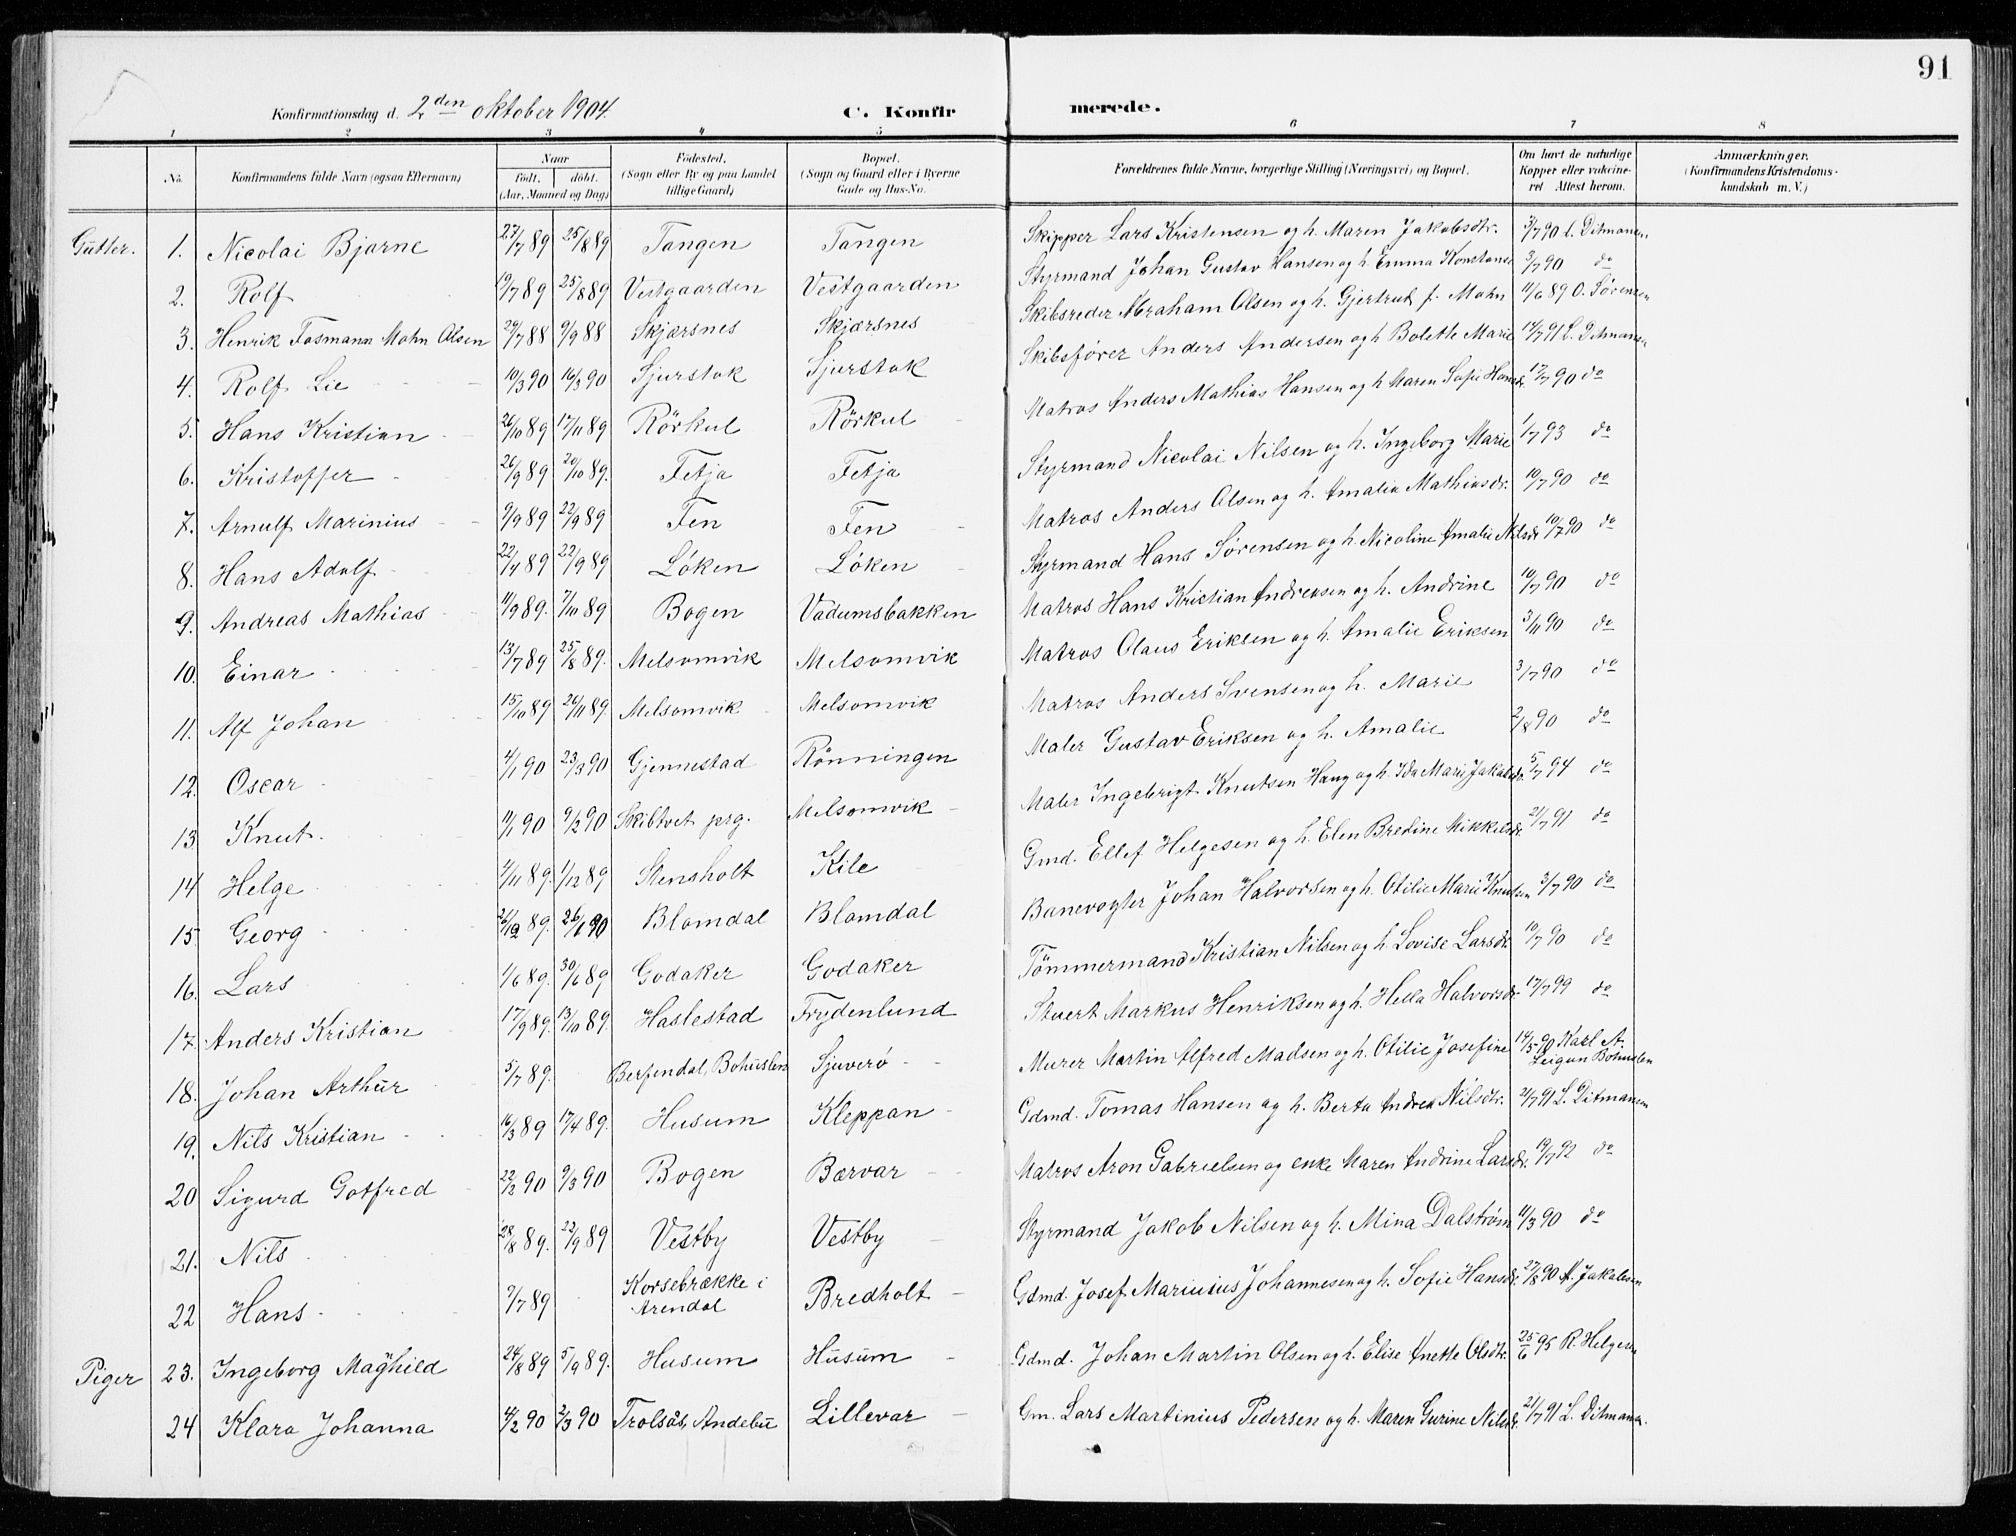 91
Konfirmationsdag d. 2den oktober 1904.
C. Konfirmerede.
1 2 3 4 5 6 7 8
No. Konfirmandens fulde Navn (ogsaa Efternavn) Naar født, døbt. (Aar, Maaned og Dag) Fødested. (Sogn eller By og paa Landet tillige Gaard) Bopæl. (Sogn og Gaard eller i Byerne Gade og Hus-No. Forældrenes fulde Navne, borgerlige Stilling (Næringsvei) og Bopæl. Om havt de naturlige Kopper eller vakcineret Attest herom. Anmærkninger. (Konfirmandens Kristendomskundskab m. V.)
Gutter. 1. Nicolai Bjarne 27/7 89 25/8 89 Tangen Tangen Skipper Lars Kristensen og h. Maren Jakobsdtr. 3/7 90 L. Ditmansen
2. Rolf 19/7 89 25/8 89 Vestgaarden Vestgaarden Styrmand Johan Gustav Hansen og h. Emma Konstanse 3/7 90 do
3. Henrik Fasmann Mohn Olsen 29/7 88 9/9 88 Skjærsnes Skjærsnes Skibsreder Abraham Olsen og h. Gjertrut f. Mohn 11/6 89 O. Sørensen
4. Rolf Lie 10/3 90 16/3 90 Sjurstok Sjurstok Skibsfører Anders Andersen og h Bolette Marie 17/7 91 L. Ditmansen
5. Hans Kristian 26/10 89 17/11 89 Rörkul Rörkul Matros Anders Mathias Hansen og h Maren Sofie Hansdr. 17/7 90 do
6. Kristoffer 26/9 89 20/10 89. Fetja Fetja Styrmand Nicolai Nilsen og h. Ingeborg Marie 1/7 93 do
7. Arnulf Marinius 9/9 89 22/9 89 Fen Fen Matros Anders Olsen og h. Amalia Mathiasdr. 10/7 90 do
8. Hans Adolf 22/4 89 22/9 89 Løken Løken Styrmand Hans Sørensen og h. Nicoline Amalie Nilsdr 10/7 90 do
9. Andreas Mathias 11/9 89. 7/10 89 Bogen Vadumsbakken Matros Hans Kristian Andreasen og h. Andrine 10/7 90 do
10. Einar 13/7 89 25/8 89. Melsomvik Melsomvik Matros Olaus Eriksen og h. Amalie Eriksen 3/11 90 do
11. Alf Johan 15/10 89 24/11 89. Melsomvik Melsomvik Matros Anders Svensen og h. Marie 3/7 90 do
12. Oscar 4/1 90 23/3 90 Gjennestad Rönningen Maler Gustav Eriksen og h. Amalie 2/8 90 do
13. Knut. 11/1 90 9/2 90 Skibtvet prg. Melsomvik Maler Ingebrigt Knutsen Haug og h. Ida Marie Jakobsdr. 5/7 94 do
14 Helge 4/11 89. 1/12 89 Stensholt Kile Gmd. Ellef Helgesen og h. Elen Bredine Mikkelsdr. 21/7 91 do
15 Georg 26/12 89. 26/1 90 Blomdal Blomdal Banevogter Johan Halvorsen og h. Otilie Marie Knutsen 3/7 90 do
16. Lars 1/6 89. 30/6 89 Godaker Godaker Tömmermand Kristian Nilsen og h. Lovise Larsdr. 10/7 90 do
17. Anders Kristian 17/9 89. 13/10 89. Haslestad Frydenlund Stuert Markus Henriksen og h. Hella Halvorsdr. 17/7 99 do
18. Johan Arthur 5/7 89. Berfendal, Bohuslen Sjuverø Murer Martin Alfred Madsen og h. Otilie Josefine 14/5 90 Karl A. Bohuslen
19. Nils Kristian 16/3 89 17/4 89. Husum Kleppan Gdmd. Tomas Hansen og h. Berta Andrea Nilsdtr. 21/7 91 L. Ditmansen
20 Sigurd Gotfred 22/2 90 9/3 90 Bogen Bærvar Matros Aron Gabrielsen og enke Maren Andrine Larsdr. 19/7 92 do
21. Nils 28/8 89. 22/9 89 Vestby Vestby Styrmand Jakob Nilsen og h. Mina Dalstrøm 11/3 90 do
22 Hans 7/7 89 Korsebrække i Arendal Bredholt Gdmd. Josef Marinius Johannesen og h. Sofie Hansdr. 27/8 90 A. Jakobsen
Piger 23. Ingeborg Maghild 24/8 89 5/9 89. Husum Husum Gdmd. Johan Martin Olsen og h. Elise Anette Olsdtr. 25/6 95 R. Helgesen
24 Klara Johanna 4/2 90 2/3 90 Trolsås, Andebu Lillevar Gm. Lars Martinius Pedersen og h. Maren Gurine Nilsdr. 21/7 91 L. Ditmansen.